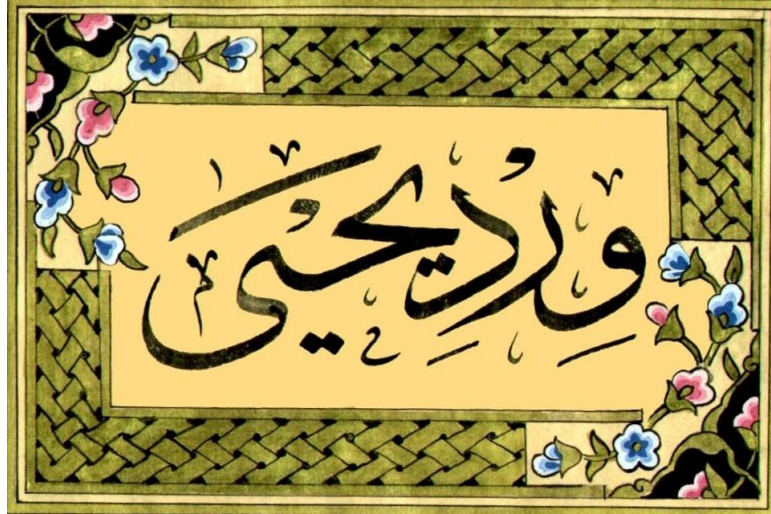 وِرْدِ يحيى